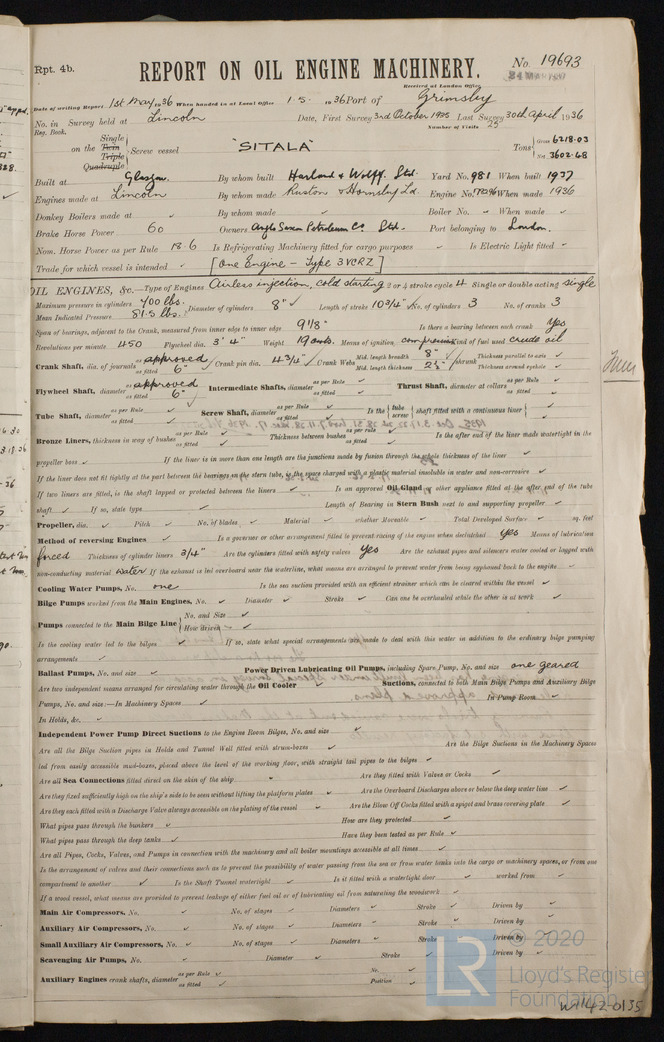 Rpt. 4b.
REPORT ON OIL ENGINE MACHINERY.
No. 19693
Received at London Office
Date of writing Report 1st May 1936 When handed in at Local Office 1.5. 1936 Port of Grimsby
No. in Survey held at Lincoln Date, First Survey 3rd October 1935 Last Survey 30th April 1936
Reg. Book. Number of Visits 25
on the Single Twin Triple Quadruple Screw vessel "SITALA" Tons Gross 6218.03 Net 3602.68
Built at Glasgow. By whom built Harland & Wolff. Ltd. Yard No. 981 When built 1937
Engines made at Lincoln By whom made Ruston & Hornsby Ld. Engine No. When made 1936
Donkey Boilers made at ✓ By whom made ✓ Boiler No. ✓ When made ✓
Brake Horse Power 60 Owners Anglo Saxon Petroleum Co Ltd. Port belonging to London.
Nom. Horse Power as per Rule 18.6 Is Refrigerating Machinery fitted for cargo purposes ✓ Is Electric Light fitted ✓
Trade for which vessel is intended ✓ [One Engine - Type 3VCRZ]
OIL ENGINES, &c.—Type of Engines Airless injection, cold starting 2 or 4 stroke cycle 4 Single or double acting single
Maximum pressure in cylinders 700 lbs. Diameter of cylinders 8" Length of stroke 10 3/4" No. of cylinders 3 No. of cranks 3
Mean Indicated Pressure 81.5 lbs.
Span of bearings, adjacent to the Crank, measured from inner edge to inner edge 9 1/8" Is there a bearing between each crank Yes
Revolutions per minute 450 Flywheel dia. 3' 4" Weight 19 cwts. Means of ignition compression Kind of fuel used crude oil
Crank Shaft, dia. of journals as per Rule approved as fitted 6" Crank pin dia. 4 3/4" Crank Webs Mid. length breadth 8" Mid. length thickness 2 1/2" shrunk Thickness parallel to axis ✓ Thickness around eyehole ✓
Flywheel Shaft, diameter as per Rule approved as fitted 6" Intermediate Shafts, diameter as per Rule ✓ as fitted ✓ Thrust Shaft, diameter at collars as per Rule ✓ as fitted ✓
Tube Shaft, diameter as per Rule ✓ as fitted ✓ Screw Shaft, diameter as per Rule ✓ as fitted ✓ Is the tube screw shaft fitted with a continuous liner ✓
Bronze Liners, thickness in way of bushes as per Rule ✓ as fitted ✓ Thickness between bushes as per Rule as fitted ✓ Is the after end of the liner made watertight in the
propeller boss ✓ If the liner is in more than one length are the junctions made by fusion through the whole thickness of the liner ✓
If the liner does not fit tightly at the part between the bearings on the stern tube, is the space charged with a plastic material insoluble in water and non-corrosive ✓
If two liners are fitted, is the shaft lapped or protected between the liners ✓ Is an approved Oil Gland or other appliance fitted at the after end of the tube
shaft ✓ If so, state type ✓ Length of Bearing in Stern Bush next to and supporting propeller ✓
Propeller, dia. ✓ Pitch ✓ No. of blades ✓ Material ✓ whether Moveable ✓ Total Developed Surface ✓ sq. feet
Method of reversing Engines ✓ Is a governor or other arrangement fitted to prevent racing of the engine when declutched Yes Means of lubrication
forced Thickness of cylinder liners 3/4" Are the cylinders fitted with safety valves Yes Are the exhaust pipes and silencers water cooled or lagged with
non-conducting material water If the exhaust is led overboard near the waterline, what means are arranged to prevent water from being syphoned back to the engine ✓
Cooling Water Pumps, No. one Is the sea suction provided with an efficient strainer which can be cleared within the vessel ✓
Bilge Pumps worked from the Main Engines, No. ✓ Diameter ✓ Stroke ✓ Can one be overhauled while the other is at work ✓
Pumps connected to the Main Bilge Line No. and Size ✓ How driven ✓
Is the cooling water led to the bilges ✓ If so, state what special arrangements are made to deal with this water in addition to the ordinary bilge pumping
arrangements ✓
Ballast Pumps, No. and size ✓ Power Driven Lubricating Oil Pumps, including Spare Pump, No. and size one geared
Are two independent means arranged for circulating water through the Oil Cooler ✓ Suctions, connected to both Main Bilge Pumps and Auxiliary Bilge
Pumps, No. and size:—In Machinery Spaces ✓ In Pump Room ✓
In Holds, &c. ✓
Independent Power Pump Direct Suctions to the Engine Room Bilges, No. and size ✓
Are all the Bilge Suction pipes in Holds and Tunnel Well fitted with strum-boxes ✓ Are the Bilge Suctions in the Machinery Spaces
led from easily accessible mud-boxes, placed above the level of the working floor, with straight tail pipes to the bilges ✓
Are all Sea Connections fitted direct on the skin of the ship ✓ Are they fitted with Valves or Cocks ✓
Are they fixed sufficiently high on the ship's side to be seen without lifting the platform plates ✓ Are the Overboard Discharges above or below the deep water line ✓
Are they each fitted with a Discharge Valve always accessible on the plating of the vessel ✓ Are the Blow Off Cocks fitted with a spigot and brass covering plate ✓
What pipes pass through the bunkers ✓ How are they protected ✓
What pipes pass through the deep tanks ✓ Have they been tested as per Rule ✓
Are all Pipes, Cocks, Valves, and Pumps in connection with the machinery and all boiler mountings accessible at all times ✓
Is the arrangement of valves and their connections such as to prevent the possibility of water passing from the sea or from water tanks into the cargo or machinery spaces, or from one
compartment to another ✓ Is the Shaft Tunnel watertight ✓ Is it fitted with a watertight door ✓ worked from ✓
If a wood vessel, what means are provided to prevent leakage of either fuel oil or of lubricating oil from saturating the woodwork ✓
Main Air Compressors, No. ✓ No. of stages ✓ Diameters ✓ Stroke ✓ Driven by ✓
Auxiliary Air Compressors, No. ✓ No. of stages ✓ Diameters ✓ Stroke ✓ Driven by ✓
Small Auxiliary Air Compressors, No. ✓ No. of stages ✓ Diameters ✓ Stroke ✓ Driven by ✓
Scavenging Air Pumps, No. ✓ Diameter ✓ Stroke ✓ Driven by ✓
Auxiliary Engines crank shafts, diameter as per Rule ✓ as fitted ✓ No. Position ✓
LR © 2020
Lloyd's Register
Foundation
W1142-0135